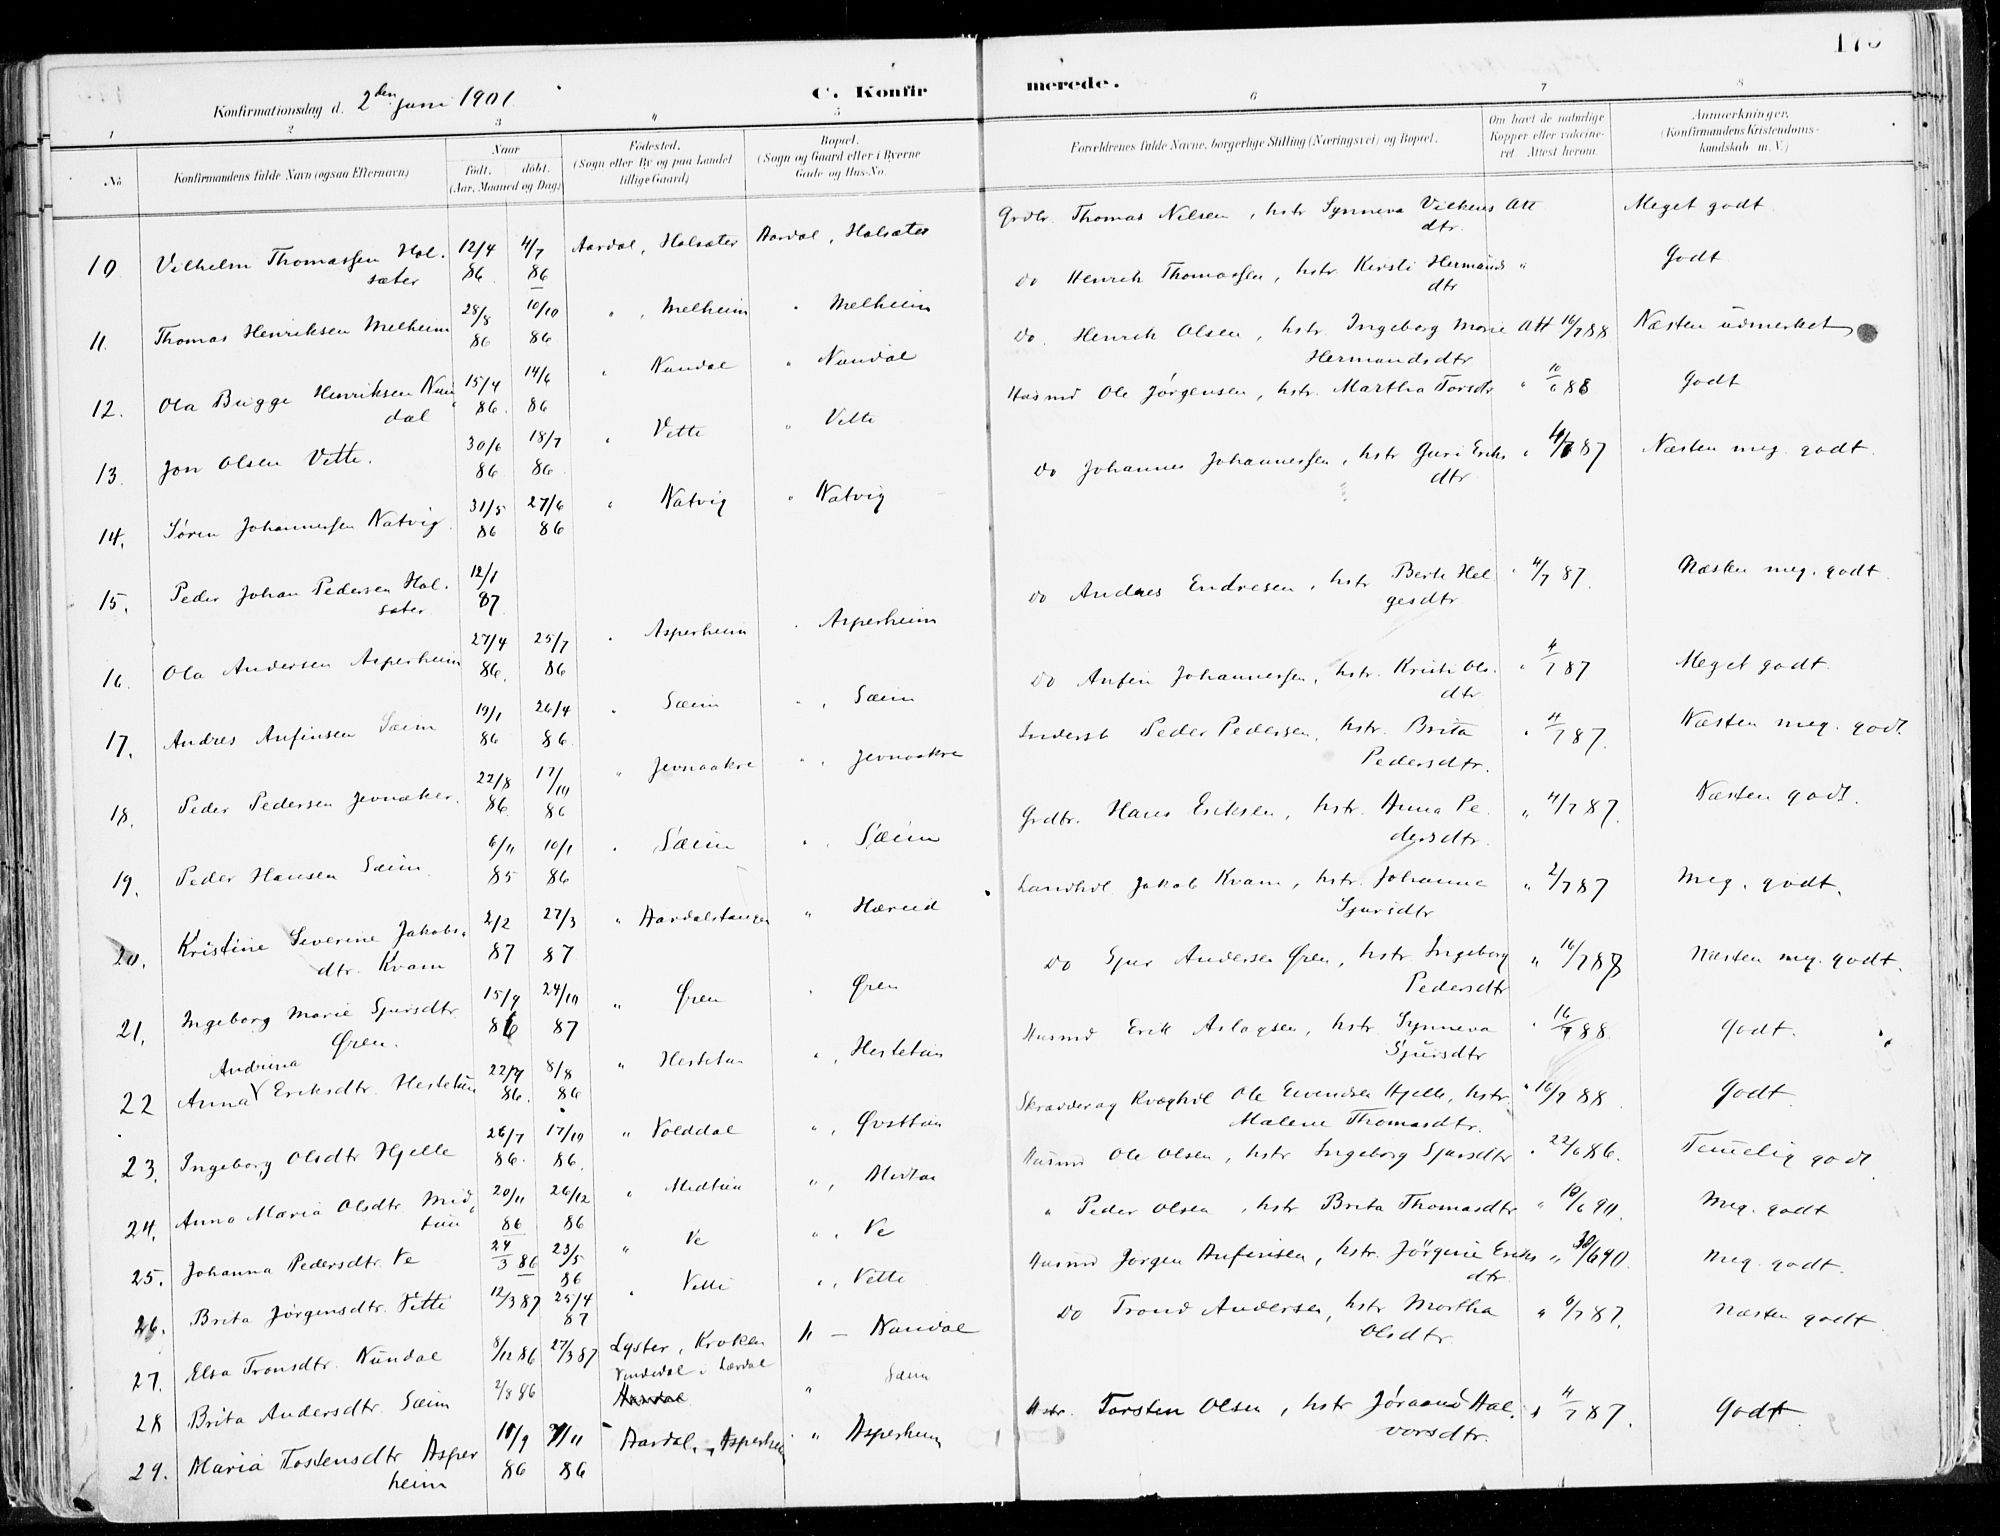 Konfirmationsdag d. 2den juni 1901
C. Konfir merede.
1 2 3 " 5 6 7 8
No
Konfirmandens fulde Navn (ogsaa Efternavn)
Naar født. døbt. (Aar, Maaned og Dag)
Fødested. (Sogn eller By og paa Landet tillige Gaard)
Bopæl. (Sogn og Gaard eller i Byerne Gade og Hus-No.
Forældrenes fulde Navne, borgerlige Stilling (Næringsvei) og Bopæl.
Om havt de naturlige Kopper eller vakcineret. Attest herom.
Anmærkninger. (Konfirmandens Kristendomskundskab m. V.)
10. Vilhelm Thomassen Halsæter 12/4 86. 4/7 86 Aardal, Halsæter Aardal, Halsæter Grdbr. Thomas Nilsen, hstr Synneva Vilkens dtr. Att Meget godt
11. Thomas Henriksen Melheim 28/8 86 10/10 86 " , Melheim " Melheim Do Henrik Thomassen, hstr. Kirsti Hermands dtr " Godt
12. Ola Bugge Henriksen Nundal 15/4 86. 14/6 86 " Nundal " Nundal Do. Henrik Olsen, hstr. Ingeborg Marie Hermandsdtr Att 16/7 88 Næsten udmerket
13. Jon Olsen Vette. 30/6 86 18/7 86 " Vette " Vette Husmd Ole Jørgensen, hstr. Martha Torsdtr " 10/6 88 Godt
14. Søren Johannessen Natvig. 31/5 86 27/6 86 " Natvig " Natvig Do Johannes Johannessen, hstr Guri Eriks dtr " 4/7 87 Næsten meg. godt.
15. Peder Johan Pedersen Halsæter. 12/1 87
16. Ola Andersen Asperheim 27/4 86. 25/7 86 " Asperheim " Asperheim Do Andres Endresen, hstr Berte Helgesdtr " 4/7 87. Næsten meg. godt.
17. Andres Anfinsen Sæim 19/1 86 26/4 86. " Sæim " , Sæim Do Anfin Johannessen, hstr. Kristi Ols. dtr " 4/7 87 Meget godt.
18. Peder Pedersen Jevnaker. 22/8 86 17/10 86 " Jevnaakre " , Jevnaakre Inderst Peder Pedersen, hstr. Brita Pedersdtr. " 4/7 87. Næsten meg. godt.
19. Peder Hansen Sæim. 6/11 85 10/1 86 " Sæim " , Sæim Grdbr. Hans Eriksen, hstr. Anna Pedersdtr. " 4/7 87. Næsten godt.
20. Kristine Severine Jakobs. dtr. Kvam 2/2 87 27/3 87 " Aardalstangen " Hæreid Landhdl Jakob Kvam, hstr. Johanne Sjursdtr " 2/7 87 Meg. godt.
21. Ingeborg Marie Sjursdtr. Øren. 15/9 86 24/10 87 " Øren " Øren Do Sjur Andersen Øren, hstr. Ingeborg Pedersdtr " 16/7 88 Næsten meg. godt.
22 Anna Andrina Eriksdtr. Hestetun 22/7 86. 8/8 86 " Hestetun " , Hestetun Husmd Erik Aslagsen, hstr. Synneva Sjursdtr " 16/7 88 Godt.
23. Ingeborg Olsdtr Hjelle 26/7 86. 17/10 86. " Volddal " , Øvsttun Skrædder og Kvæghdl Ole Eivendsen Hjelle, hstr. Malene Thomasdtr. " 16/7 88. Godt.
24. Anna Maria Olsdtr. Midtun 20/11 86 26/12 86 " Midtun " , Midtun Husmd Ole Olsen, hstr Ingeborg Sjursdtr " 22/6 86. Temelig godt
25. Johanna Pedersdtr. Ve 24/3 86 23/5 86 " Ve " , Ve " Peder Olsen, hstr Brita Thomasdtr " 10/6 90. Meg. godt
26. Brita Jørgensdtr. Vetti 12/3 87 25/4 87 " Vetti " , Vette Husmd Jørgen Anfinsen, hstr. Jörgine Eriks dtr. " 30/6 90. Meg. godt.
27. Elsa Tronsdtr. Nundal 8/12 86 27/3 87 Lyster, Kroken " — Nundal Do Trond Andersen, hstr Martha Olsdtr. " 6/7 87. Næsten godt.
28 Brita Andersdtr. Sæim 2/8 86 Vindedal i Lærdal " Sæim
29. Maria Tostensdtr Asperheim 10/9 86 7/11 86 Aardal, Asperheim " Asperheim Torsten Olsen, hstr Jøraand Halvorsdtr. " 4/7 87. Godt.